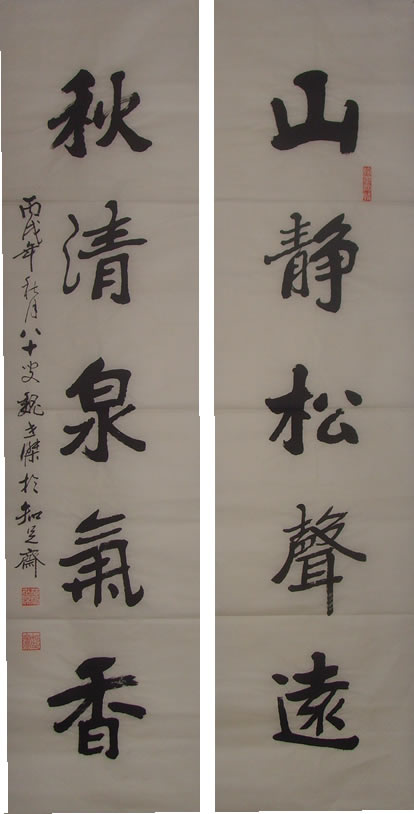 山静松聲遠
秋清泉氣香
丙戌年秋月八十叟魏士傑於知足齋